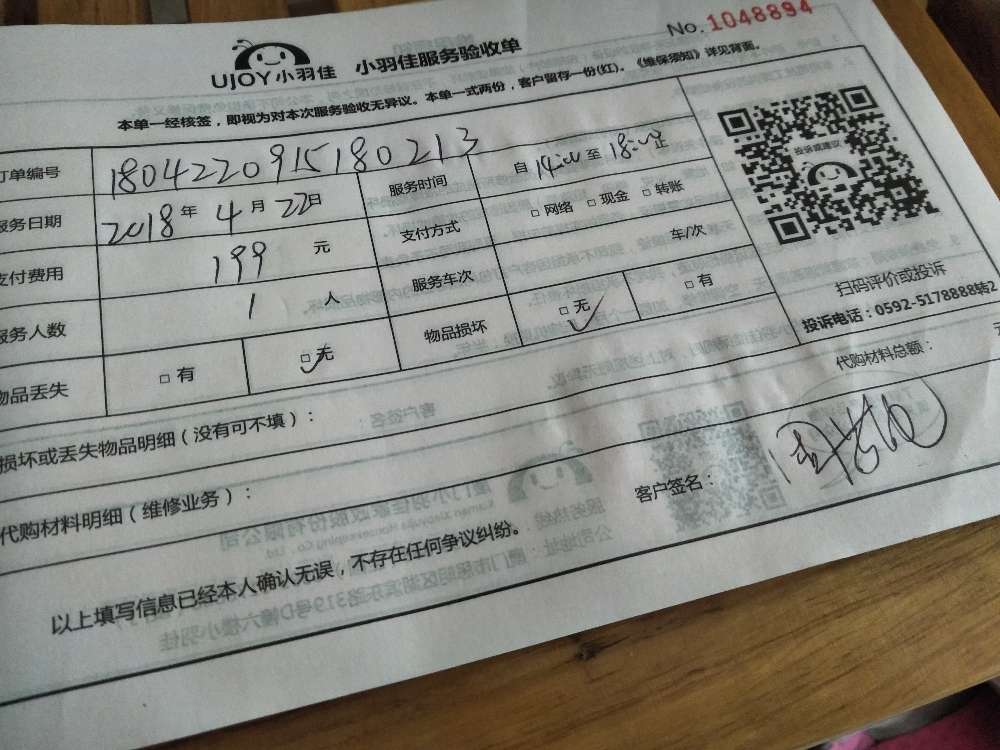 No. 1048894
UJOY小羽佳 小羽佳服务验收单
本单一经核签，即视为对本次服务验收无异议。本单一式两份，客户留存一份(红)。《维保须知》详见背面。
订单编号 1804220915180213
服务日期 2018 年 4 月 22日 服务时间 自 14:00 至 18:00 止
支付费用 199 元 支付方式 □ 网络 □ 现金 □ 转账
服务人数 1 人 服务车次 车/次
物品丢失 □ 有 □ 无 物品损坏 □ 无 □ 有
投诉或建议
扫码评价或投诉
投诉电话：0592-5178888转2
损坏或丢失物品明细（没有可不填）：
代购材料明细（维修业务）： 代购材料总额： 元
客户签名：
以上填写信息已经本人确认无误，不存在任何争议纠纷。